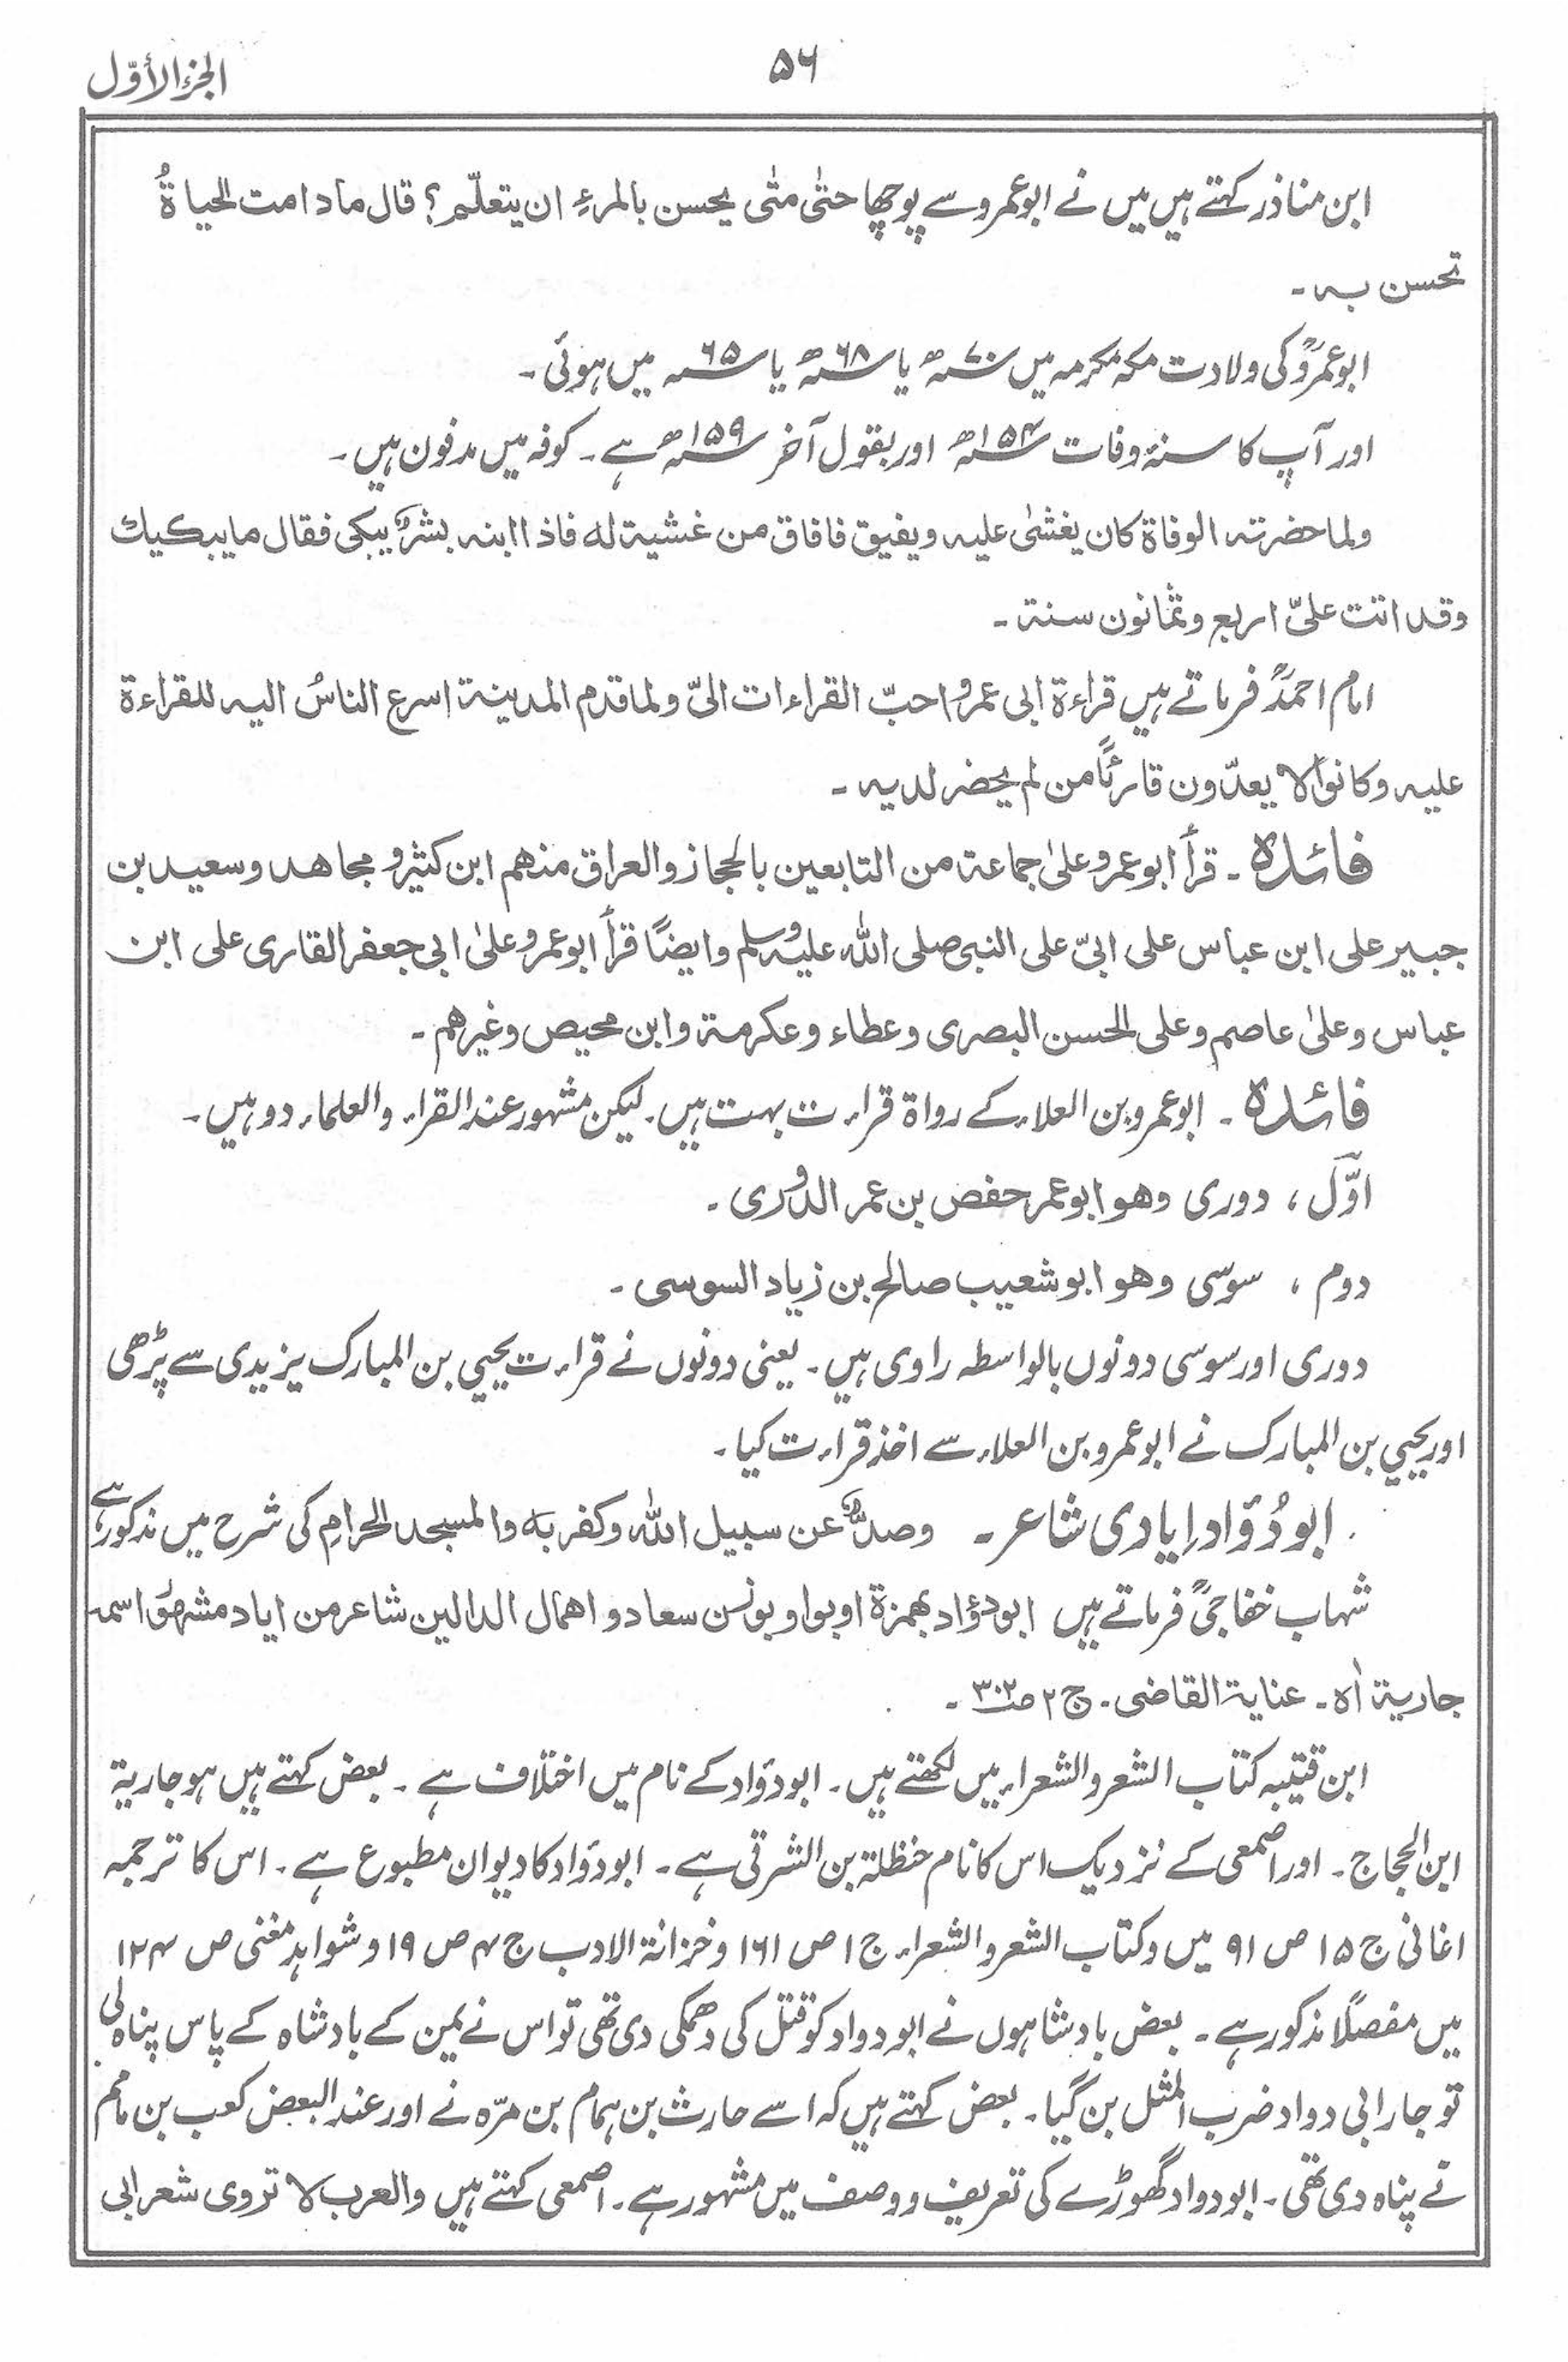 الجزء الأوّل
۵۶
ابن مناذر کہتے ہیں میں نے ابوعمرو سے پوچھا حتّٰی متٰی یحسن بالمرءِ ان یتعلّم؟ قال مادامت الحیاةُ
تحسن بہ ۔
ابوعمروؒ کی ولادت مکہ مکرمہ میں سنہ ۷۰ھ یا سنہ ۶۸ھ یا سنہ ۶۵ میں ہوئی ۔
اور آپ کا سنۂ وفات سنہ ۱۵۴ھ اور بقول آخر سنہ ۱۵۹ھ ہے ۔ کوفہ میں مدفون ہیں ۔
ولما حضرتہ الوفاة کان یغشٰی علیہ ویفیق فافاق من غشیة لہ فاذا ابنہ بشرؒ یبکی فقال ما یبکیك
وقد اتت علیّ اربع وثمانون سنة ۔
امام احمدؒ فرماتے ہیں قراءة ابی عمرو احبّ القراءات الیّ ولما قدم المدینة اسرع الناسُ الیہ للقراءة
علیہ وکانوا لا یعدّون قارئًا من لم یحضر لدیہ ۔
فائدہ ۔ قرأ ابوعمرو علیٰ جماعة من التابعین بالحجاز والعراق منھم ابن کثیر و مجاھد وسعید بن
جبیر علی ابن عباس علی ابیّ علی النبی صلی اللہ علیہ وسلم وایضًا قرأ ابوعمرو علیٰ ابی جعفر القاری علی ابن
عباس وعلیٰ عاصم وعلی الحسن البصری وعطاء وعکرمة وابن محیص وغیرھم ۔
فائدہ ۔ ابوعمرو بن العلاء کے رواة قراءت بہت ہیں ۔ لیکن مشہور عند القراء والعلماء دو ہیں ۔
اوّل ، دوری وھو ابوعمر حفص بن عمر الدوری ۔
دوم ، سوسی وھو ابوشعیب صالح بن زیاد السوسی ۔
دوری اور سوسی دونوں بالواسطہ راوی ہیں ۔ یعنی دونوں نے قراءت یحیی بن المبارک یزیدی سے پڑھی
اور یحیی بن المبارک نے ابوعمرو بن العلاء سے اخذ قراءت کیا ۔
ابودُؤاد اِیادی شاعر ۔ وصدٌّ عن سبیل اللہ وکفر بہ والمسجد الحرامِ کی شرح میں مذکور ہے
شہاب خفاجیؒ فرماتے ہیں ابودؤاد بھمزة او بواو بوزن سعاد و اھمال الدالین شاعر من ایاد مشھور اسمہ
جاریة اٰہ ۔ عنایة القاضی ۔ ج ۲ ص ۳۰۲ ۔
ابن قتیبہ کتاب الشعر والشعراء میں لکھتے ہیں ۔ ابودؤاد کے نام میں اختلاف ہے ۔ بعض کہتے ہیں ہو جاریة
ابن الحجاج ۔ اور اصمعی کے نزدیک اس کا نام حنظلة بن الشرقی ہے ۔ ابودؤاد کا دیوان مطبوع ہے ۔ اس کا ترجمہ
اغانی ج ۱۵ ص ۹۱ میں وکتاب الشعر والشعراء ج ۱ ص ۱۶۱ و خزانة الادب ج ۴ ص ۱۹ و شواہد مغنی ص ۱۲۴
میں مفصلًا مذکور ہے ۔ بعض بادشاہوں نے ابودواد کو قتل کی دھمکی دی تھی تو اس نے یمن کے بادشاہ کے پاس پناہ لی
تو جار ابی دواد ضرب المثل بن گیا ۔ بعض کہتے ہیں کہ اسے حارث بن ہمام بن مرّہ نے اور عند البعض کعب بن مامہ
نے پناہ دی تھی ۔ ابودواد گھوڑے کی تعریف ووصف میں مشہور ہے ۔ اصمعی کہتے ہیں والعرب لا تروی شعر ابی